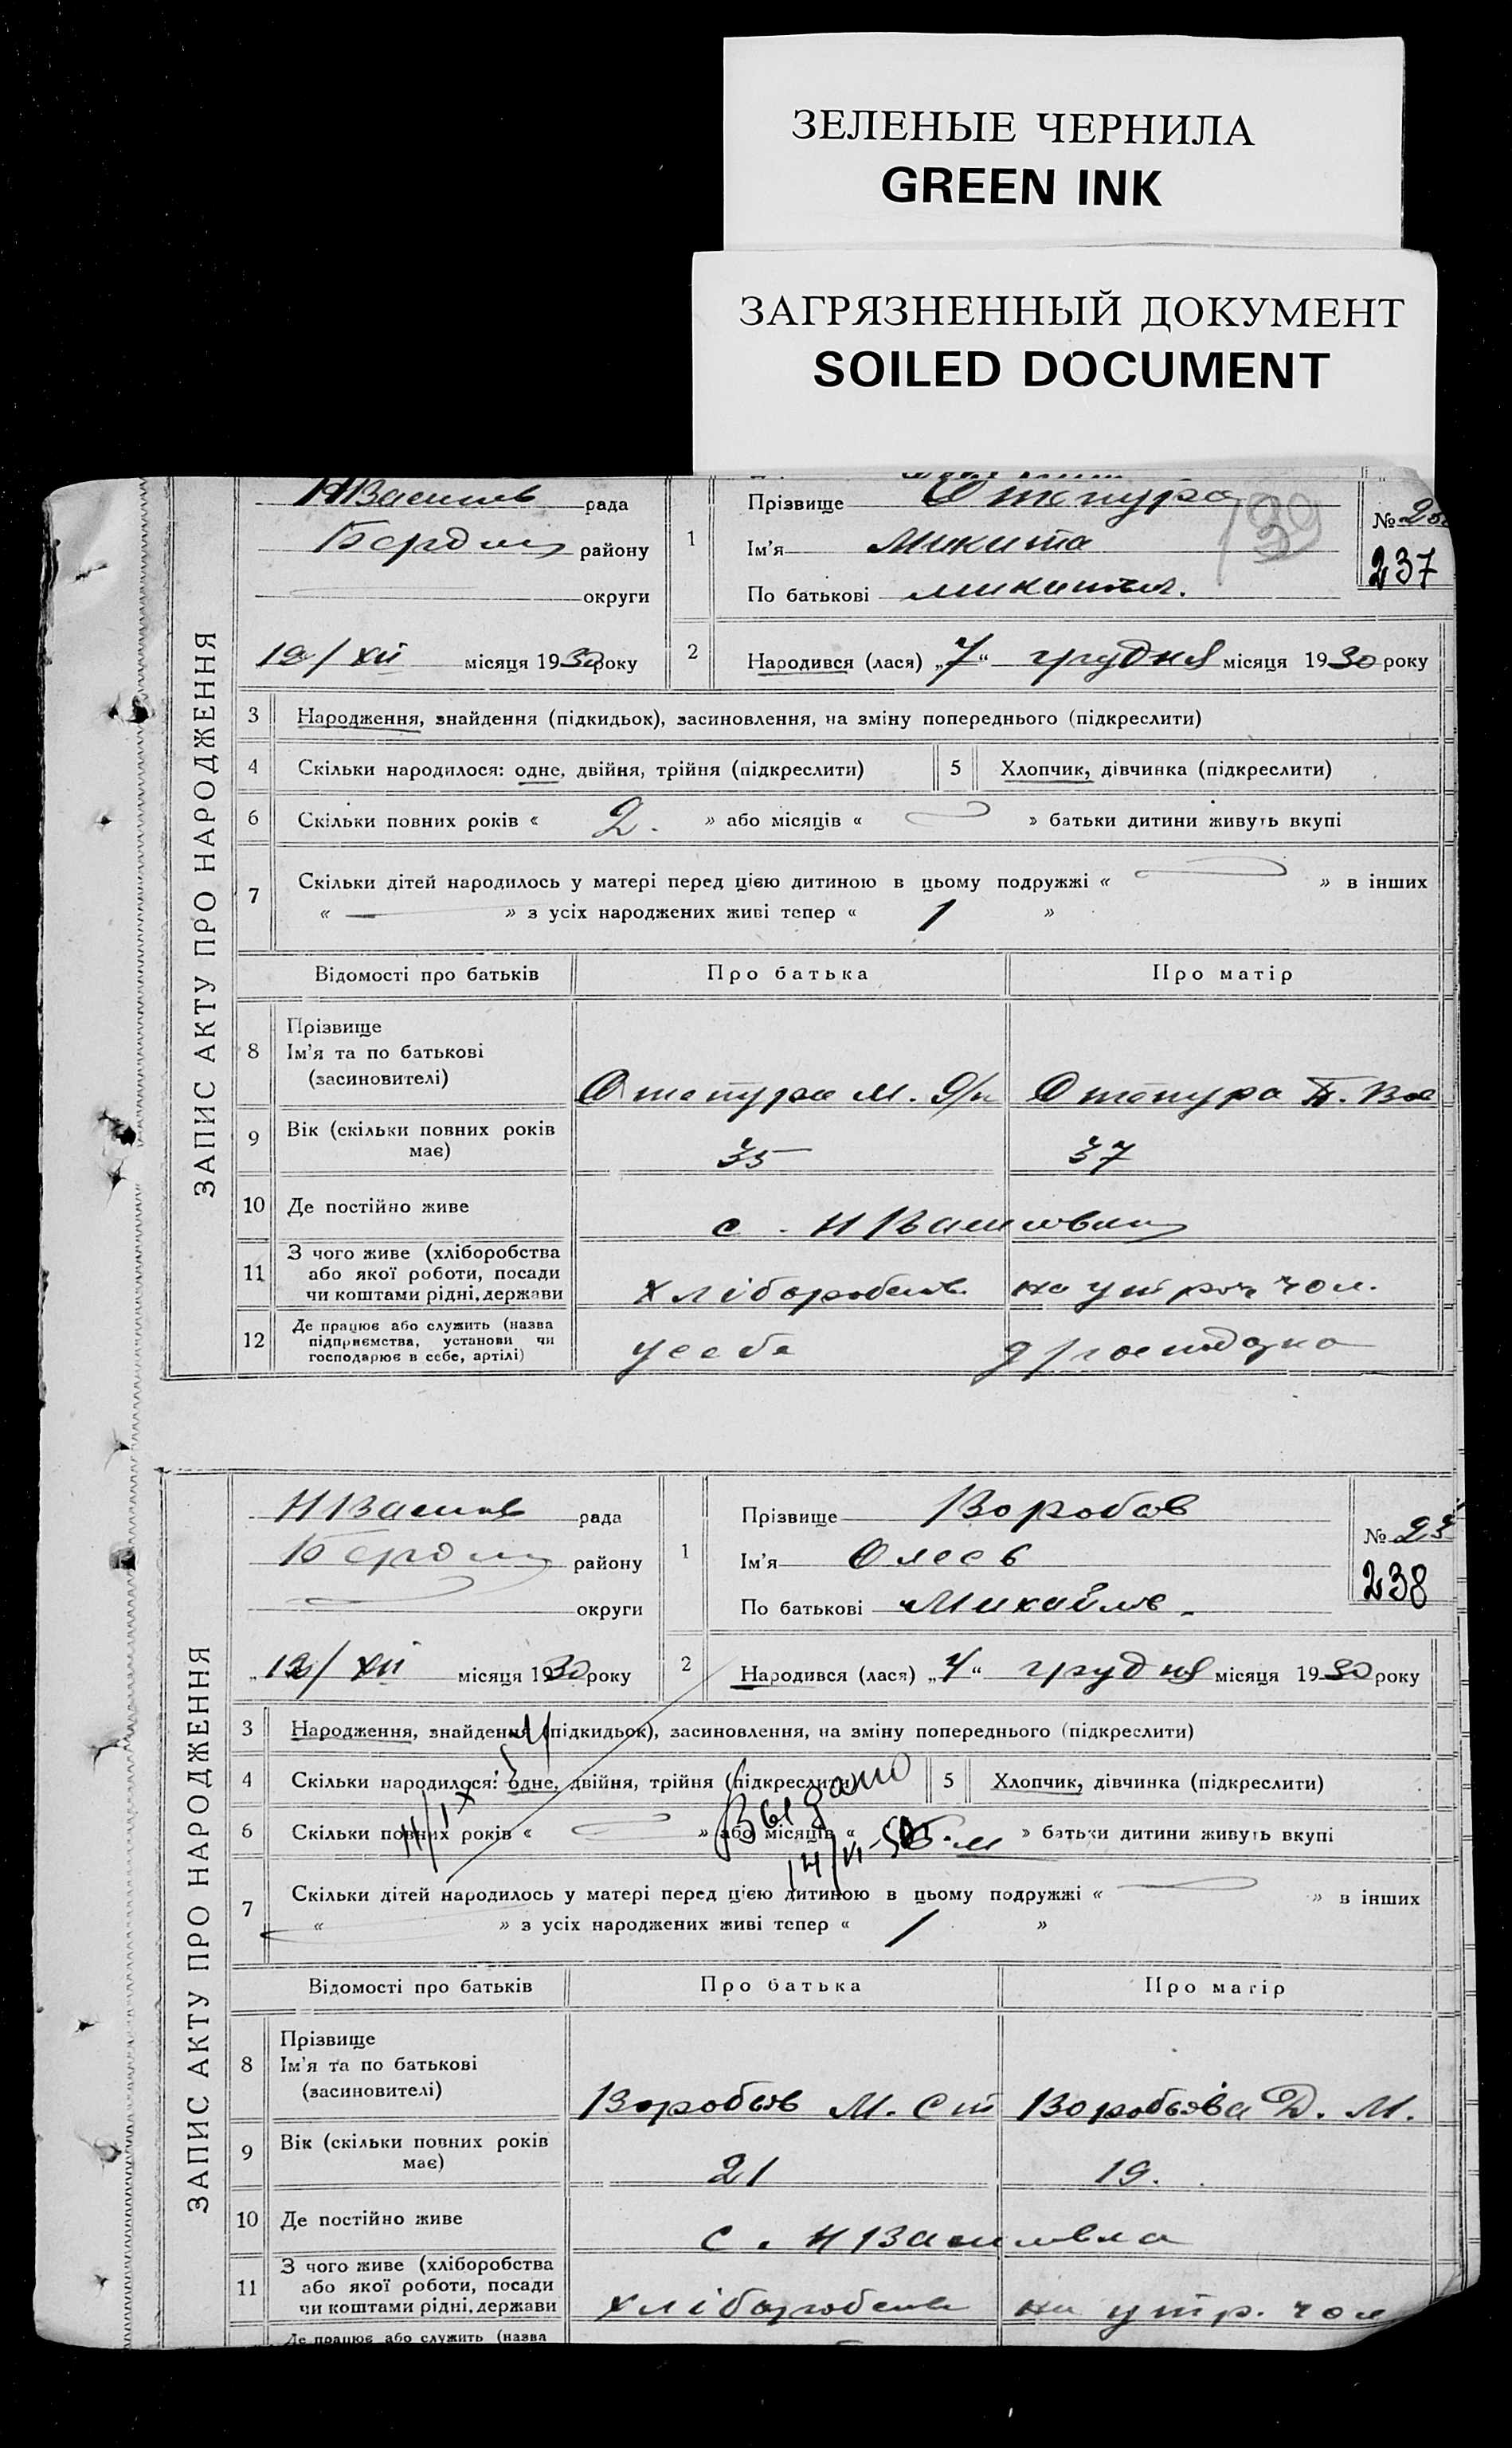 ЗЕЛЕНЫЕ ЧЕРНИЛА
GREEN INK
ЗАГРЯЗНЕННЫЙ ДОКУМЕНТ
SOILED DOCUMENT
ЗАПИС АКТУ ПРО НАРОДЖЕННЯ
НВасилів рада
Бердян району
округи
12/XII місяця 1930 року
1
Прізвище Отепура
Ім'я Микита
По батькові Микитов.
139
№
237
2 Народився (лася) „7“ грудня місяця 1930 року
3 Народження, знайдення (підкидьок), засиновлення, на зміну попереднього (підкреслити)
4 Скільки народилося: одне, двійня, трійня (підкреслити) 5 Хлопчик, дівчинка (підкреслити)
6 Скільки повних років « 2. » або місяців « » батьки дитини живуть вкупі
7 Скільки дітей народилось у матері перед цією дитиною в цьому подружжі « — » в інших
« — » з усіх народжених живі тепер « 1 »
Відомості про батьків Про батька Про матір
8 Прізвище
Ім'я та по батькові
(засиновителі)
Отепура М. Отепура
9 Вік (скільки повних років має) 35 37
10 Де постійно живе с. НВасилівка
11 З чого живе (хліборобства або якої роботи, посади чи коштами рідні, держави хліборобств на утрим чол.
12 Де працює або служить (назва підприємства, установи чи господарює в себе, артілі) у себе д/господарка
ЗАПИС АКТУ ПРО НАРОДЖЕННЯ
НВасилів рада
Бердян району
округи
„12/XII місяця 1930 року
1
Прізвище Воробьов
Ім'я Олесь
По батькові Михайлов.
№ 23
238
2 Народився (лася) „7“ грудня місяця 1930 року
3 Народження, знайдення (підкидьок), засиновлення, на зміну попереднього (підкреслити)
4 Скільки народилося: одне, двійня, трійня (підкреслити) 5 Хлопчик, дівчинка (підкреслити)
Выдано
6 Скільки повних років « » або місяців « » батьки дитини живуть вкупі
7 Скільки дітей народилось у матері перед цією дитиною в цьому подружжі « — » в інших
« » з усіх народжених живі тепер « 1 »
Відомості про батьків Про батька Про матір
8 Прізвище
Ім'я та по батькові
(засиновителі)
Воробьов М. Ст Воробьова Д. М.
9 Вік (скільки повних років має) 21 19.
10 Де постійно живе с. НВасилівка
11 З чого живе (хліборобства або якої роботи, посади чи коштами рідні, держави хліборобств на утр. чол
Де працює або служить (назва